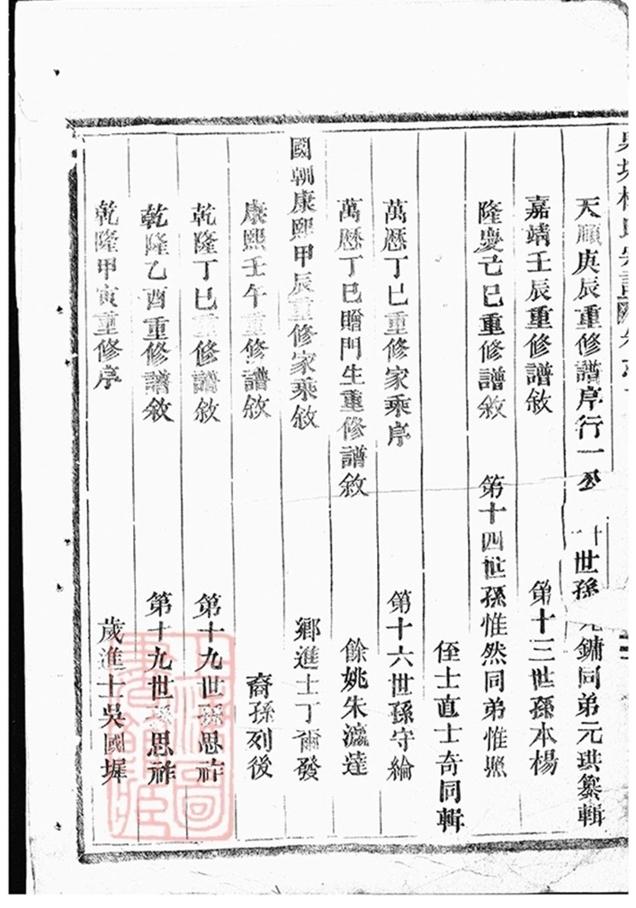 天順庚辰重修譜序行一公 世孫元鏞同弟元珙纂輯
嘉靖壬辰重修譜敘 第十三世孫本楊
隆慶己巳重修譜敘 第十四世孫惟然同弟惟㷖
侄士直士奇同輯
萬曆丁巳重修家乘序 第十六世孫守綸
萬曆丁巳贈門生重修譜敘 餘姚朱瀛達
國朝康熙甲辰重修家乘敘 鄉進士丁爾發
康熙壬午重修譜敘 裔孫列後
乾隆丁巳重修譜敘 第十九世孫思祚
乾隆乙酉重修譜敘 第十九世孫思祚
乾隆甲寅重修序 歲進士吳國墀